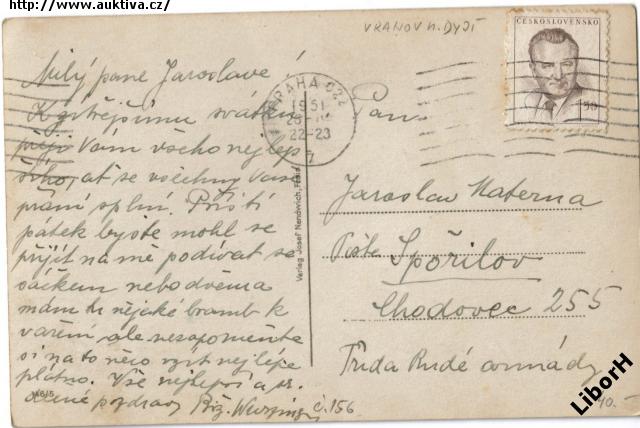 http://www.auktiva.cz/
VRANOV n. DYJÍ
ČESKOSLOVENSKO
1.50
PRAHA 022
1951
22-23
7
Milý pane Jaroslave!
K zítřejšímu svátku
přeji Vám všeho nejlep
šího, ať se všechny Vaše
přání splní. Příští
pátek byste mohl se
přijít na mě podívat se
sáčkem nebo dvěma
mám tu nějaké bramb k
vaření, ale nezapomeňte
si na to něco vzít nejlépe
plátno. Vše nejlepší a sr.
dečné pozdravy Bož.
č. 156
146/5
Verlag Josef Nendwich,
Pan
Jaroslav Materna
Pošta Spořilov
Chodovec 255
Třída Rudé armády
LiborH
40.-